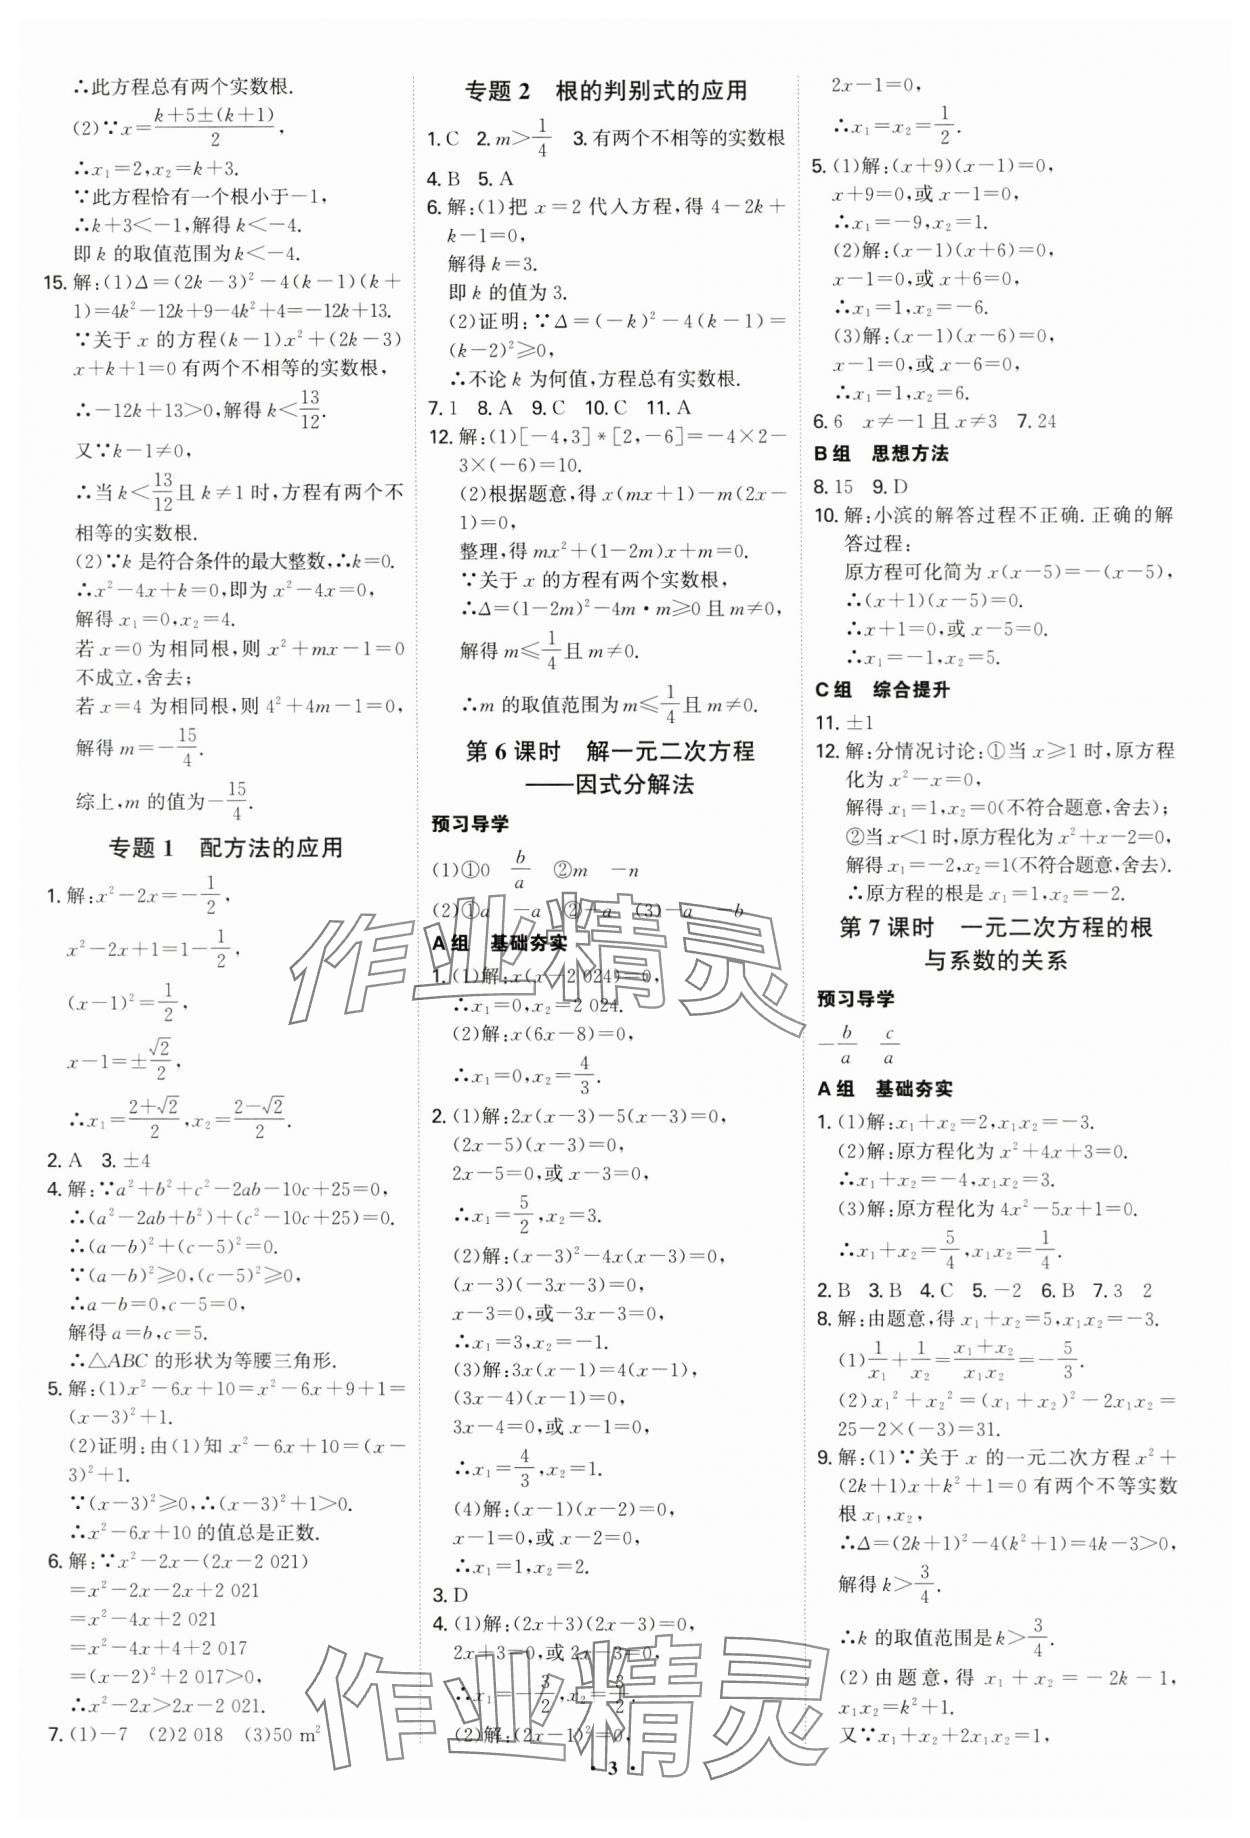 ∴此方程总有两个实数根.
(2)∵x=\frac{k+5±(k+1)}{2},
∴x₁=2,x₂=k+3.
∵此方程恰有一个根小于-1,
∴k+3<-1,解得k<-4.
即 k 的取值范围为k<-4.
15. 解:(1)Δ=(2k-3)²-4(k-1)(k+
1)=4k²-12k+9-4k²+4=-12k+13.
∵关于 x 的方程(k-1)x²+(2k-3)
x+k+1=0 有两个不相等的实数根,
∴-12k+13>0,解得 k<\frac{13}{12}.
又∵k-1≠0,
∴当 k<\frac{13}{12}且 k≠1 时,方程有两个不
相等的实数根.
(2)∵k 是符合条件的最大整数,∴k=0.
∴x²-4x+k=0,即为 x²-4x=0,
解得 x₁=0,x₂=4.
若 x=0 为相同根,则 x²+mx-1=0
不成立,舍去;
若 x=4 为相同根,则 4²+4m-1=0,
解得 m=-\frac{15}{4}.
综上,m 的值为-\frac{15}{4}.
专题 1 配方法的应用
1. 解:x²-2x=-\frac{1}{2},
x²-2x+1=1-\frac{1}{2},
(x-1)²=\frac{1}{2},
x-1=±\frac{√2}{2},
∴x₁=\frac{2+√2}{2},x₂=\frac{2-√2}{2}.
2. A 3. ±4
4. 解:∵a²+b²+c²-2ab-10c+25=0,
∴(a²-2ab+b²)+(c²-10c+25)=0.
∴(a-b)²+(c-5)²=0.
∵(a-b)²≥0,(c-5)²≥0,
∴a-b=0,c-5=0,
解得 a=b,c=5.
∴△ABC 的形状为等腰三角形.
5. 解:(1)x²-6x+10=x²-6x+9+1=
(x-3)²+1.
(2)证明:由(1)知 x²-6x+10=(x-
3)²+1.
∵(x-3)²≥0,∴(x-3)²+1>0.
∴x²-6x+10 的值总是正数.
6. 解:∵x²-2x-(2x-2 021)
=x²-2x-2x+2 021
=x²-4x+2 021
=x²-4x+4+2 017
=(x-2)²+2 017>0,
∴x²-2x>2x-2 021.
7. (1)-7 (2)2 018 (3)50 m²
专题 2 根的判别式的应用
1. C 2. m>\frac{1}{4} 3. 有两个不相等的实数根
4. B 5. A
6. 解:(1)把 x=2 代入方程,得 4-2k+
k-1=0,
解得 k=3.
即 k 的值为 3.
(2)证明:∵Δ=(-k)²-4(k-1)=
(k-2)²≥0,
∴不论 k 为何值,方程总有实数根.
7. 1 8. A 9. C 10. C 11. A
12. 解:(1)[-4,3]*[2,-6]=-4×2-
3×(-6)=10.
(2)根据题意,得 x(mx+1)-m(2x-
1)=0,
整理,得 mx²+(1-2m)x+m=0.
∵关于 x 的方程有两个实数根,
∴Δ=(1-2m)²-4m·m≥0 且 m≠0,
解得 m≤\frac{1}{4}且 m≠0.
∴m 的取值范围为 m≤\frac{1}{4}且 m≠0.
第 6 课时 解一元二次方程
——因式分解法
预习导学
(1)①0 \frac{b}{a} ②m -n
(2)①a -a ②-a (3)-a -b
A 组 基础夯实
1. (1)解:x(x-2 024)=0,
∴x₁=0,x₂=2 024.
(2)解:x(6x-8)=0,
∴x₁=0,x₂=\frac{4}{3}.
2. (1)解:2x(x-3)-5(x-3)=0,
(2x-5)(x-3)=0,
2x-5=0,或 x-3=0,
∴x₁=\frac{5}{2},x₂=3.
(2)解:(x-3)²-4x(x-3)=0,
(x-3)(-3x-3)=0,
x-3=0,或-3x-3=0,
∴x₁=3,x₂=-1.
(3)解:3x(x-1)=4(x-1),
(3x-4)(x-1)=0,
3x-4=0,或 x-1=0,
∴x₁=\frac{4}{3},x₂=1.
(4)解:(x-1)(x-2)=0,
x-1=0,或 x-2=0,
∴x₁=1,x₂=2.
3. D
4. (1)解:(2x+3)(2x-3)=0,
2x+3=0,或 2x-3=0,
∴x₁=-\frac{3}{2},x₂=\frac{3}{2}.
(2)解:(2x-1)²=0,
2x-1=0,
∴x₁=x₂=\frac{1}{2}.
5. (1)解:(x+9)(x-1)=0,
x+9=0,或 x-1=0,
∴x₁=-9,x₂=1.
(2)解:(x-1)(x+6)=0,
x-1=0,或 x+6=0,
∴x₁=1,x₂=-6.
(3)解:(x-1)(x-6)=0,
x-1=0,或 x-6=0,
∴x₁=1,x₂=6.
6. 6 x≠-1 且 x≠3 7. 24
B 组 思想方法
8. 15 9. D
10. 解:小滨的解答过程不正确. 正确的解
答过程:
原方程可化简为 x(x-5)=-(x-5),
∴(x+1)(x-5)=0.
∴x+1=0,或 x-5=0.
∴x₁=-1,x₂=5.
C 组 综合提升
11. ±1
12. 解:分情况讨论:①当 x≥1 时,原方程
化为 x²-x=0,
解得 x₁=1,x₂=0(不符合题意,舍去);
②当 x<1 时,原方程化为 x²+x-2=0,
解得 x₁=-2,x₂=1(不符合题意,舍去).
∴原方程的根是 x₁=1,x₂=-2.
第 7 课时 一元二次方程的根
与系数的关系
预习导学
-\frac{b}{a} \frac{c}{a}
A 组 基础夯实
1. (1)解:x₁+x₂=2,x₁x₂=-3.
(2)解:原方程化为 x²+4x+3=0.
∴x₁+x₂=-4,x₁x₂=3.
(3)解:原方程化为 4x²-5x+1=0.
∴x₁+x₂=\frac{5}{4},x₁x₂=\frac{1}{4}.
2. B 3. B 4. C 5. -2 6. B 7. 3 2
8. 解:由题意,得 x₁+x₂=5,x₁x₂=-3.
(1)\frac{1}{x₁}+\frac{1}{x₂}=\frac{x₁+x₂}{x₁x₂}=-\frac{5}{3}.
(2)x₁²+x₂²=(x₁+x₂)²-2x₁x₂=
25-2×(-3)=31.
9. 解:(1)∵关于 x 的一元二次方程 x²+
(2k+1)x+k²+1=0 有两个不等实数
根 x₁,x₂,
∴Δ=(2k+1)²-4(k²+1)=4k-3>0,
解得 k>\frac{3}{4}.
∴k 的取值范围是 k>\frac{3}{4}.
(2)由题意,得 x₁+x₂=-2k-1,
x₁x₂=k²+1.
又∵x₁+x₂+2x₁x₂=1,
· 3 ·
作业精灵
作业精灵